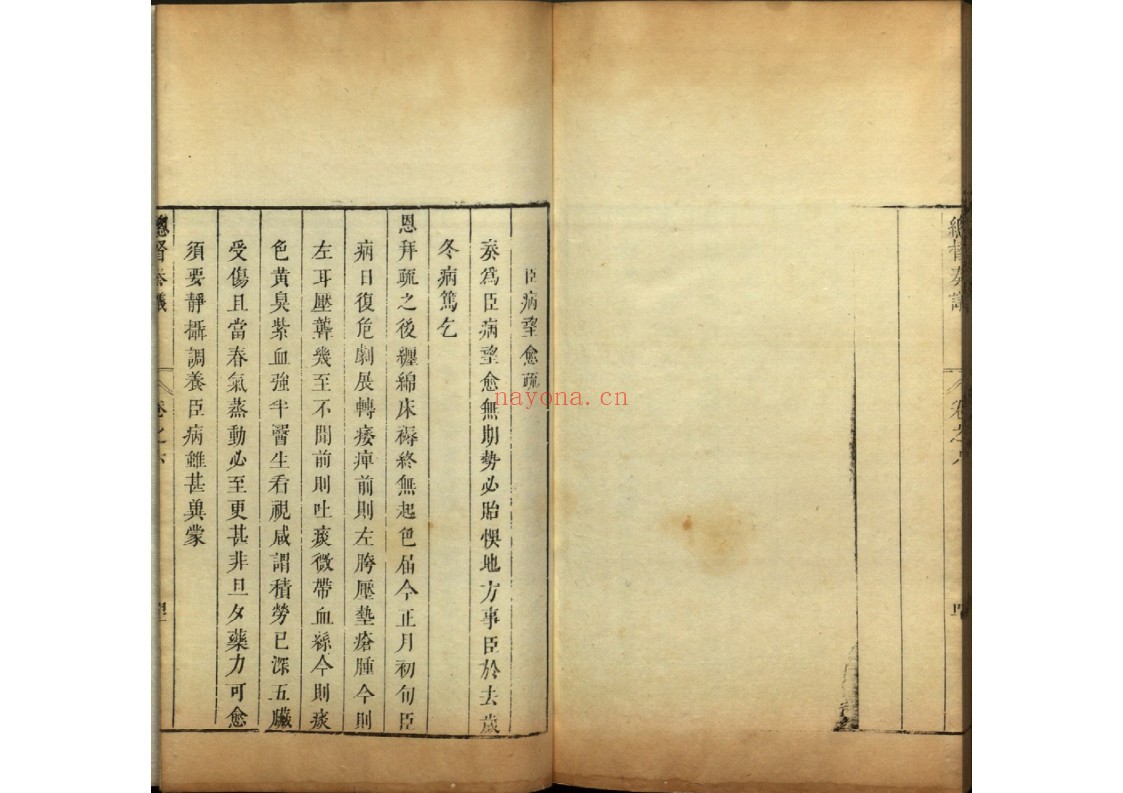 總督奏議
臣病望愈疏
奏為臣病望愈無期勢必貽悞地方事臣於去歲
冬病篤乞
恩拜疏之後纏綿床褥終無起色屆今正月初旬臣
病日復危劇展轉痿痺前則左胯壓墊瘡腫今則
左耳壓聾幾至不聞前則吐痰微帶血絲今則痰
色黃臭紫血強半醫生看視咸謂積勞已深五臟
受傷且當春氣蒸動必至更甚非旦夕藥力可愈
須要靜攝調養臣病雖甚異蒙
總督奏議
卷之六
nayona.cn